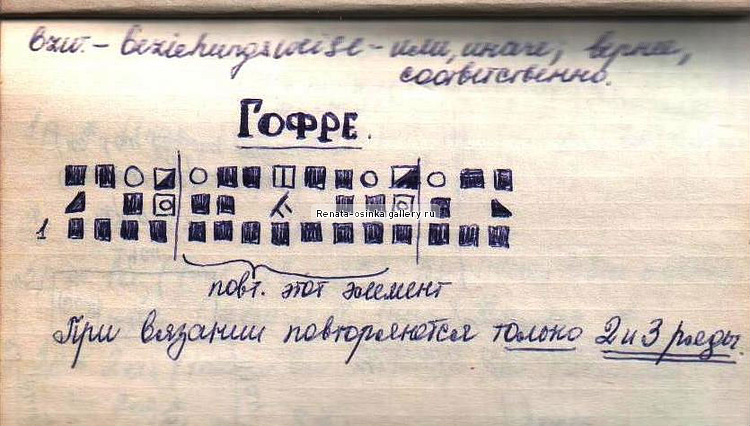 bzw. – beziehungsweise – или, иначе, вернее,
соответственно.
Гофре.
Renata-osinka gallery ru
1
повт. этот элемент
При вязании повторяются только 2 и 3 ряды.